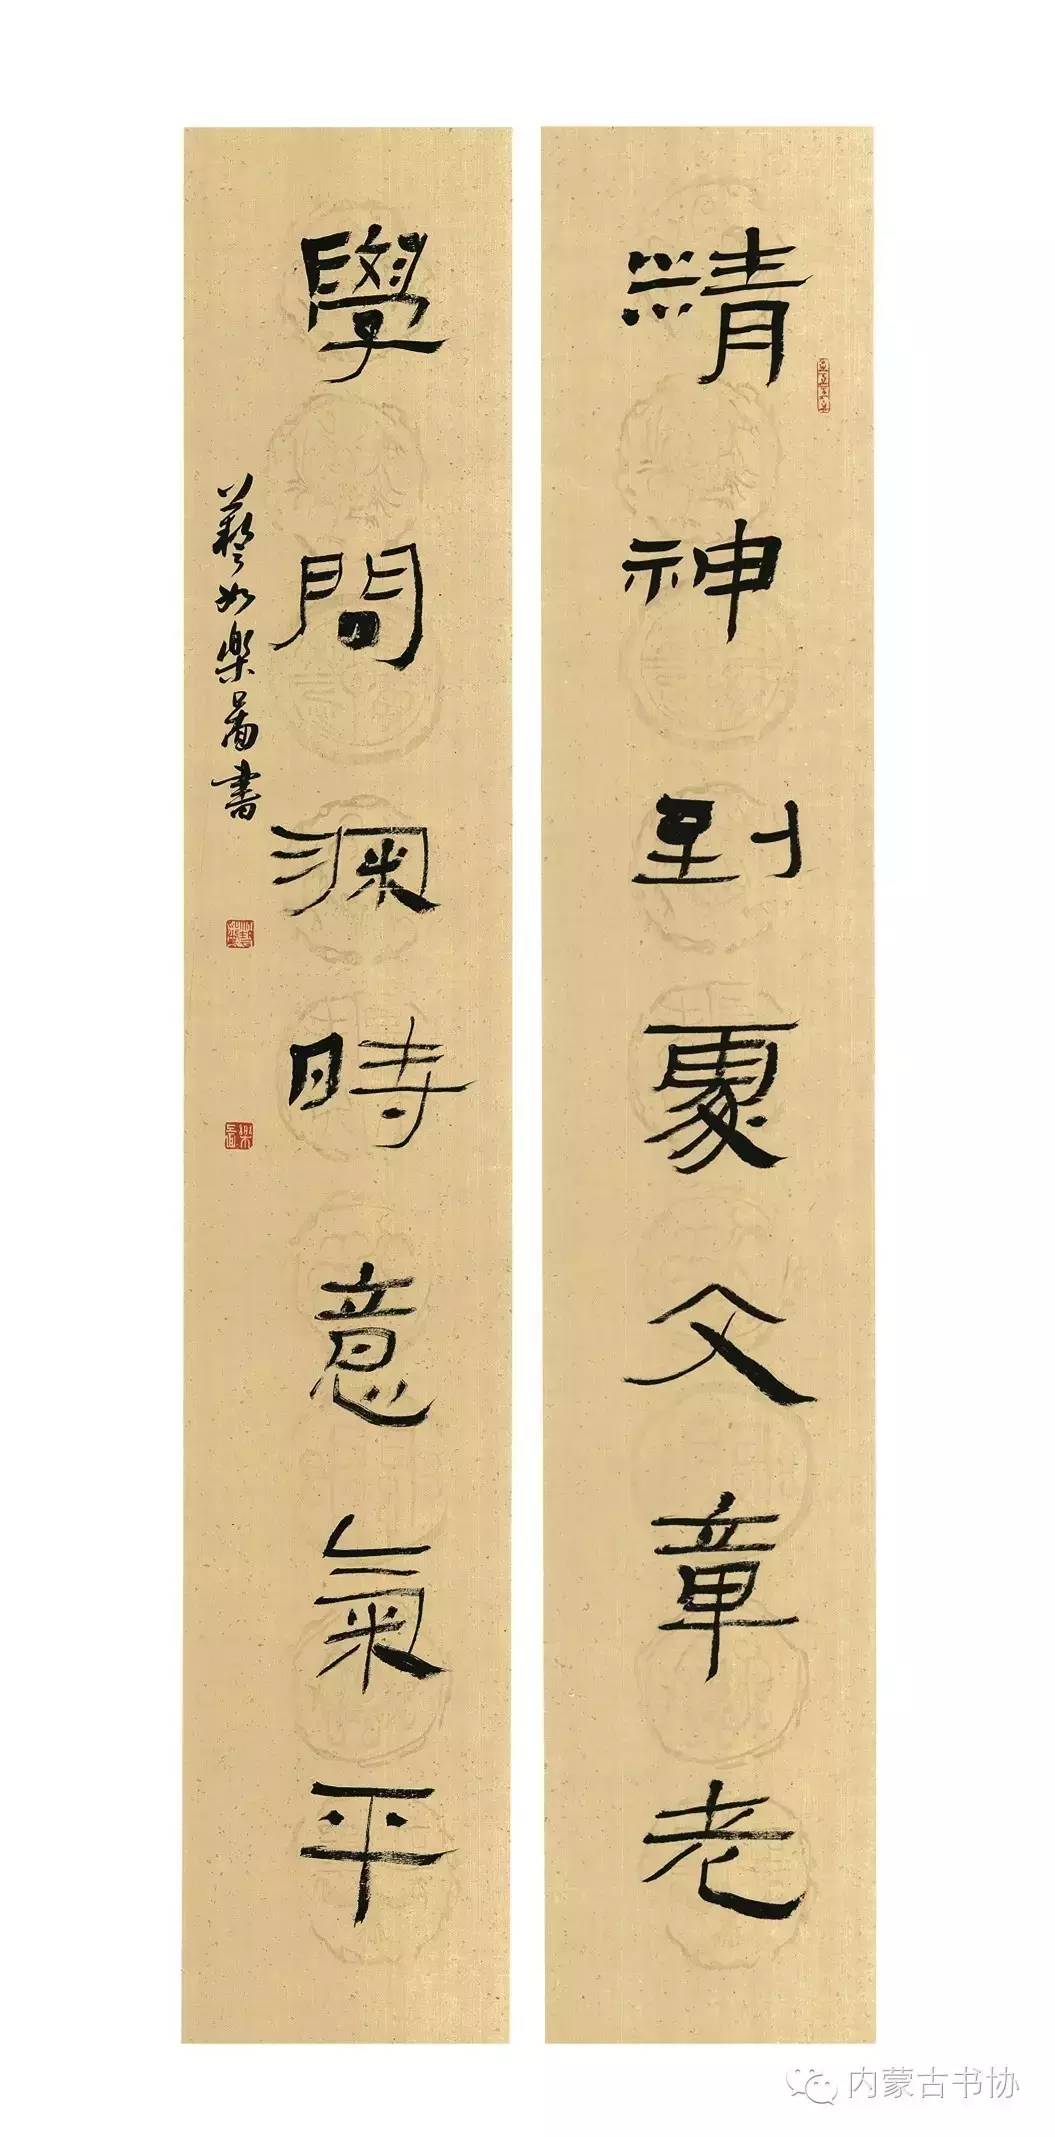 精神到處文章老
學問深時意氣平
藝如樂圖書
内蒙古书协